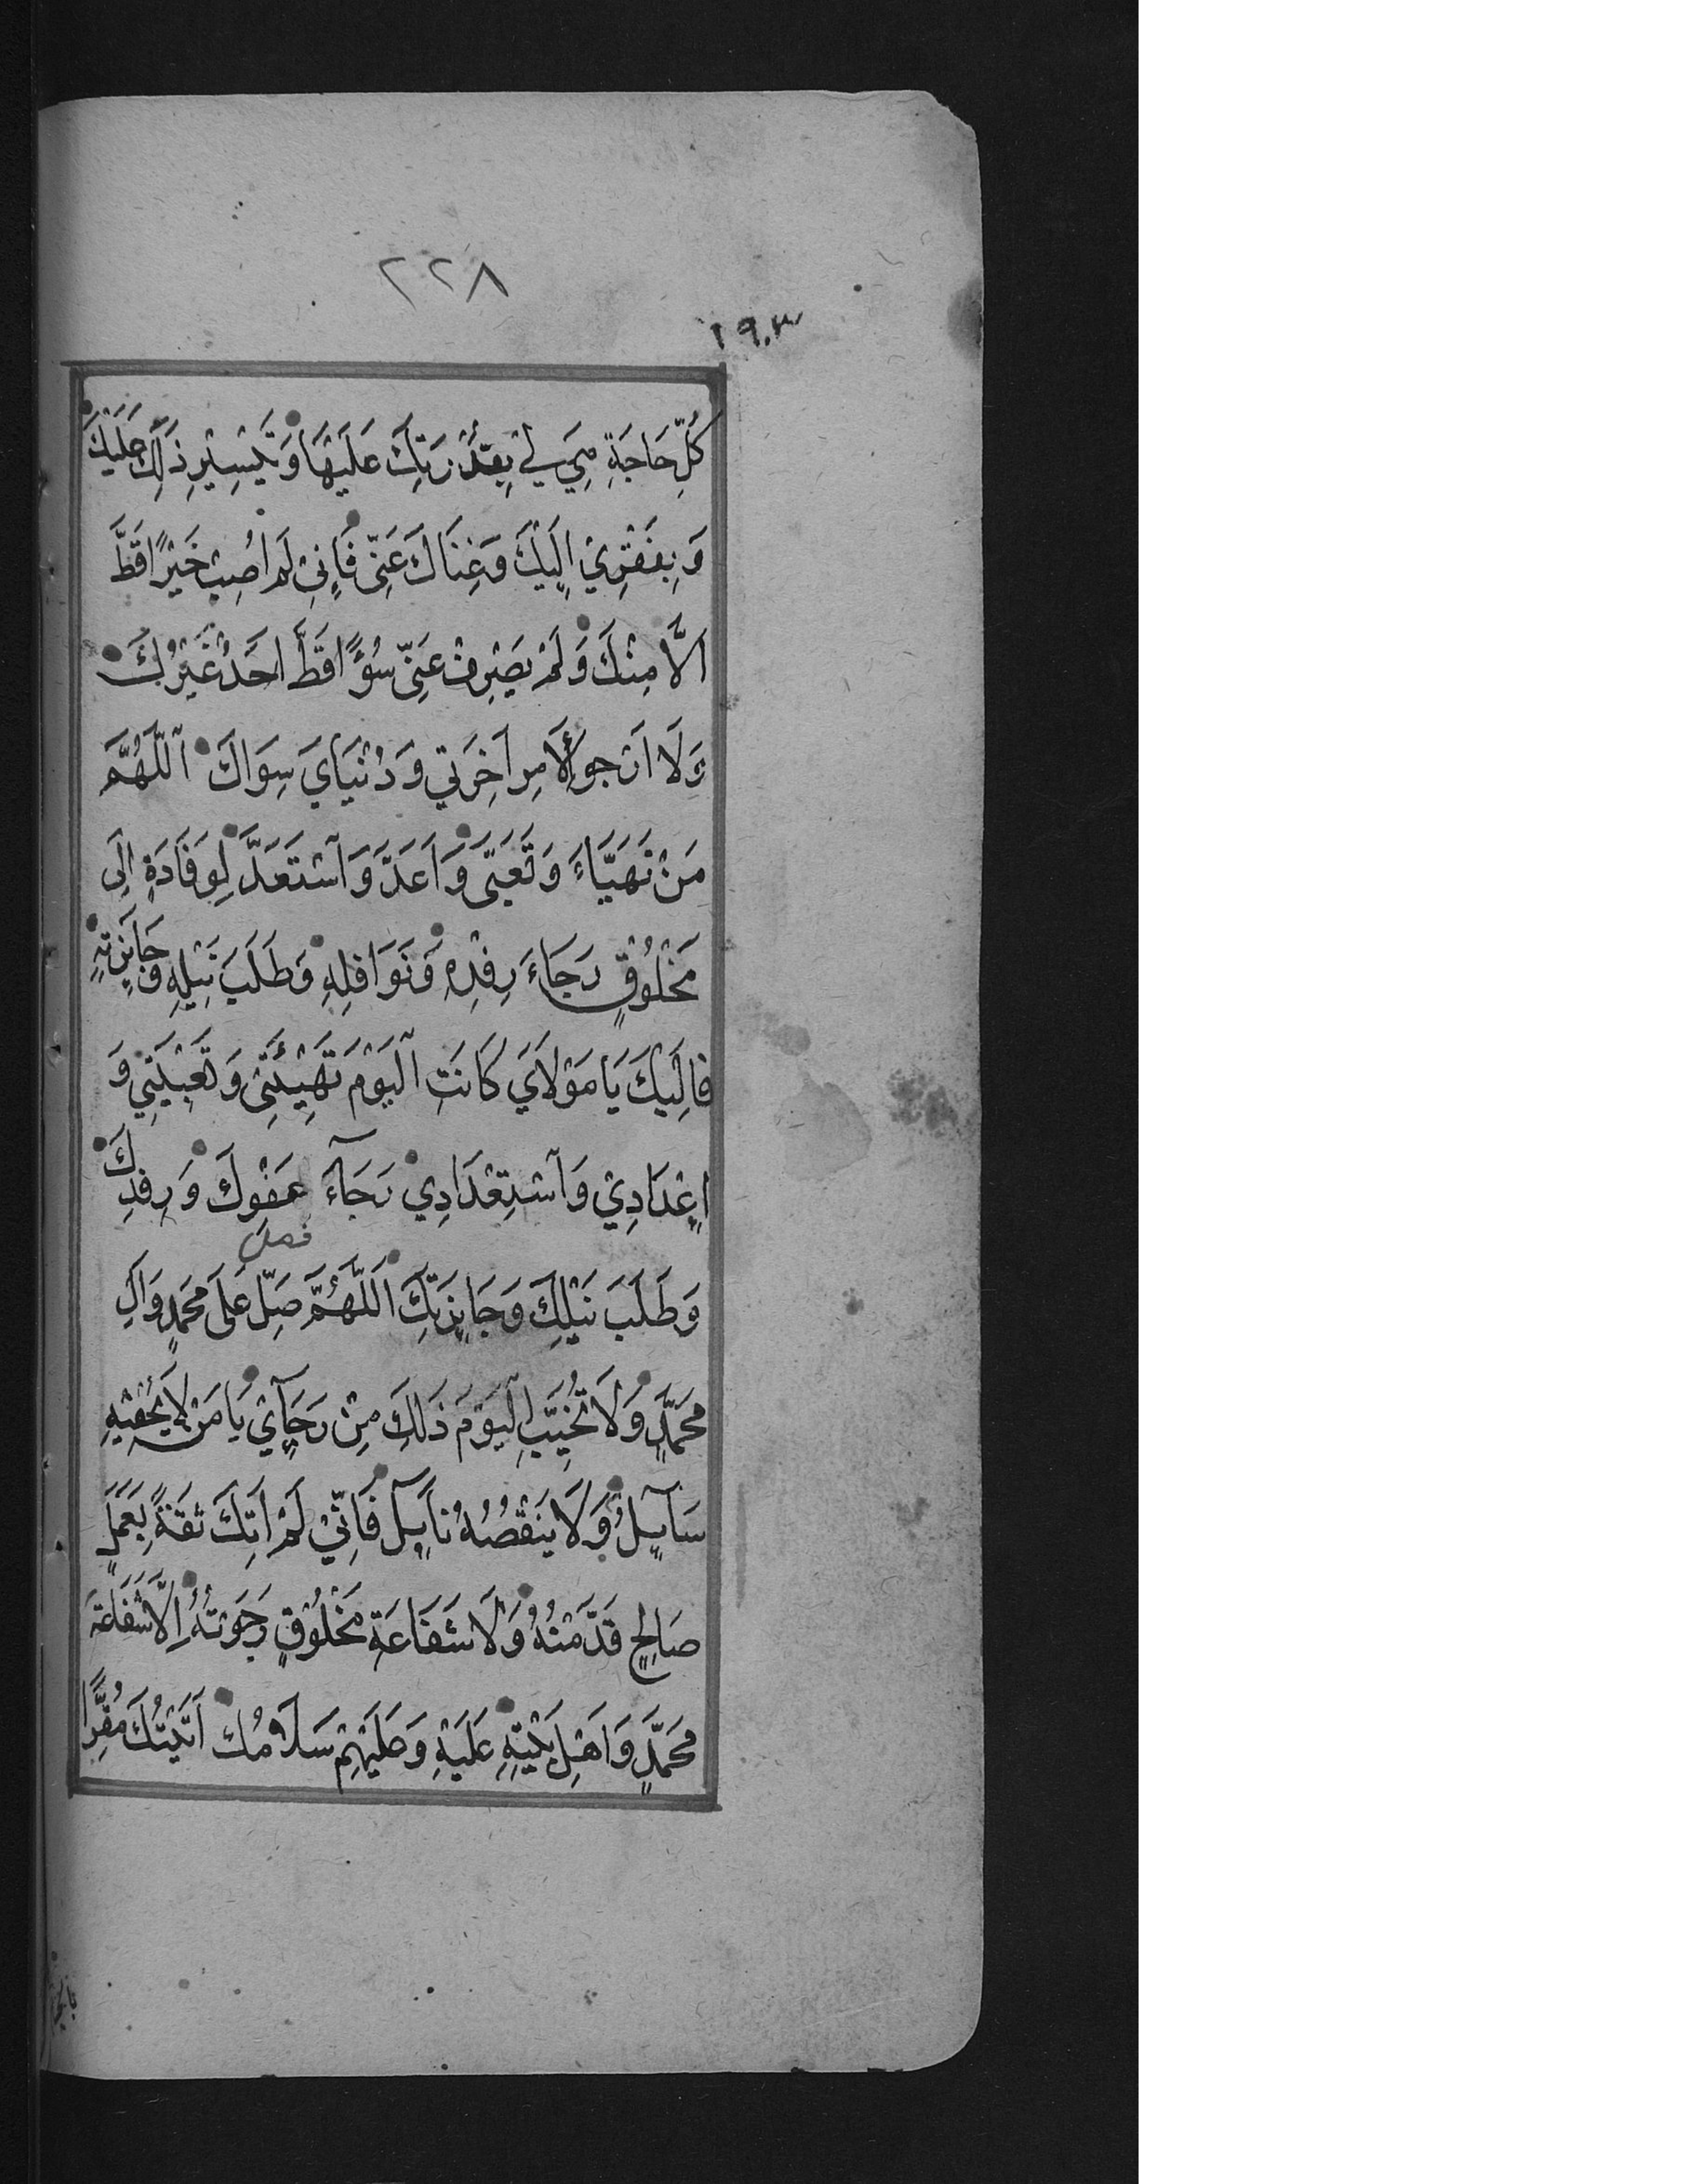 ٢٢٨
١٩٠٣
كُلِّ حَاجَةٍ هِيَ لِيْ بِقُدْرَتِكَ عَلَيْهَا وَتَيْسِيْرِ ذٰلِكَ عَلَيْكَ
وَبِفَقْرِيْ اِلَيْكَ وَغِنَاكَ عَنِّى فَاِنِىْ لَمْ اُصِبْ خَيْرًا قَطُّ
اِلَّا مِنْكَ وَلَمْ يَصْرِفْ عَنِّى سُوْءً اقَطُّ اَحَدٌ غَيْرُكَ
وَلَا اَرْجُو لِاَمْرِ اٰخِرَتِي وَدُنْيَايَ سِوَاكَ اَللّٰهُمَّ
مَنْ تَهَيَّاءَ وَتَعَبَّى وَاَعَدَّ وَاسْتَعَدَّ لِوَفَادَةٍ اِلَى
مَخْلُوْقٍ رَجَاءَ رِفْدِهِ وَنَوَافِلِهِ وَطَلَبَ نَيْلِهِ وَجَايِزَتِهِ
فَاِلَيْكَ يَا مَوْلَايَ كَانَتِ الْيَوْمَ تَهْيِئَتِىْ وَتَعْبِيَتِيْ وَ
اِعْدَادِيْ وَاسْتِعْدَادِيْ رَجَآءَ عَفْوِكَ وَرِفْدِكَ
فصل
وَطَلَبَ نَيْلِكَ وَجَايِزَتِكَ اَللّٰهُمَّ صَلِّ عَلَى مُحَمَّدٍ وَاٰلِ
مُحَمَّدٍ وَلَا تُخَيِّبِ الْيَوْمَ ذٰلِكَ مِنْ رَجَآيِيْ يَا مَنْ لَا يُحْفِيْهِ
سَآيِلٌ وَلَا يَنْقُصُهُ نَايِلٌ فَاِنِّيْ لَمْ اٰتِكَ ثِقَةً بِعَمَلٍ
صَالِحٍ قَدَّمْتُهُ وَلَا شَفَاعَةِ مَخْلُوْقٍ رَجَوْتُهُ اِلَّا شَفَاعَةَ
مُحَمَّدٍ وَاَهْلِ بَيْتِهِ عَلَيْهِ وَعَلَيْهِمْ سَلَامُكَ اَتَيْتُكَ مُقِرًّا